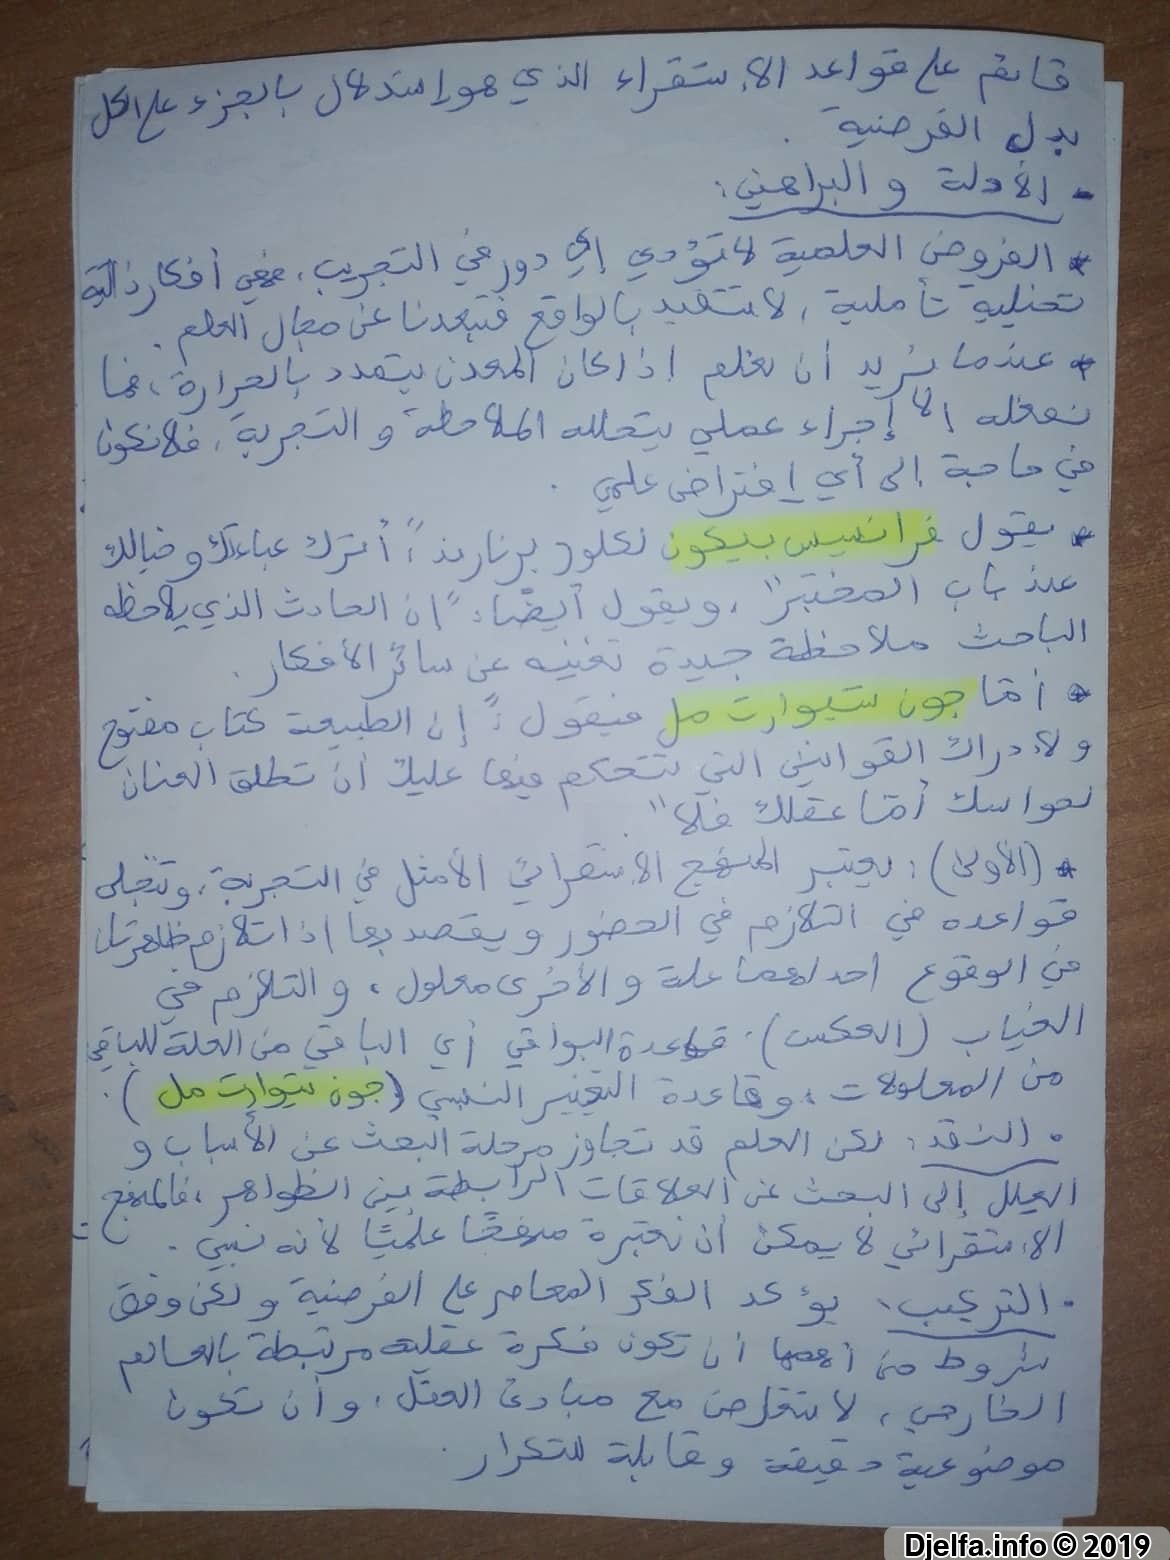 قائم على قواعد الإستقراء الذي هو إستدلال بالجزء على الكل
بدل الفرضية .
- الأدلة و البراهين :
* الفروض العلمية لا تؤدي إلي دور في التجريب ، فهي أفكار ذاتية
تخيلية تأملية ، لا تتقيد بالواقع فتبعدنا عن مجال العلم .
* عندما نريد أن نعلم إذا كان المعدن يتمدد بالحرارة ، فما
نفعله الا إجراء عملي يتخلله الملاحظة و التجربة ، فلا نكون
في حاجة إلى أي إفتراض علمي .
* يقول فرانسيس بيكون لكلود برنارند : " أترك عباءتك و خيالك
عند باب المختبر " ، ويقول أيضًا : " إن الحادث الذي يلاحظه
الباحث ملاحظة جيدة تغنيه عن سائر الأفكار .
* أمّا جون ستيوارت مل فيقول : " إن الطبيعة كتاب مفتوح
و لإدراك القوانين التي تتحكم فيها عليك أن تطلق العنان
لحواسك أمّا عقلك فلا " .
* (الأولى) : يعتبر المنهج الإستقرائي الأمثل في التجربة ، وتتجلى
قواعده في التلازم في الحضور و يقصد بها إذا تلازم ظاهرتان
في الوقوع أحدهما علة و الأخرى معلول ، و التلازم في
الغياب (العكس) . قاعدة البواقي أي الباقي من العلة للباقي
من المعلولات ، و قاعدة التغير النسبي (جون ستيوارت مل ) .
• النقد : لكن العلم قد تجاوز مرحلة البحث عن الأسباب و
العلل إلى البحث عن العلاقات الرابطة بين الظواهر ، فالمنهج
الإستقرائي لا يمكن أن نعتبره منهجًا علميًا لأنه نسبي .
• التركيب : يؤكد الفكر المعاصر على الفرضية و لكن وفق
شروط من أهمها أن تكون فكرة عقلية مرتبطة بالعالم
الخارجي ، لا تتعارض مع مبادئ العقل ، و أن تكون
موضوعية دقيقة و قابلة للتكرار .
Djelfa.info © 2019